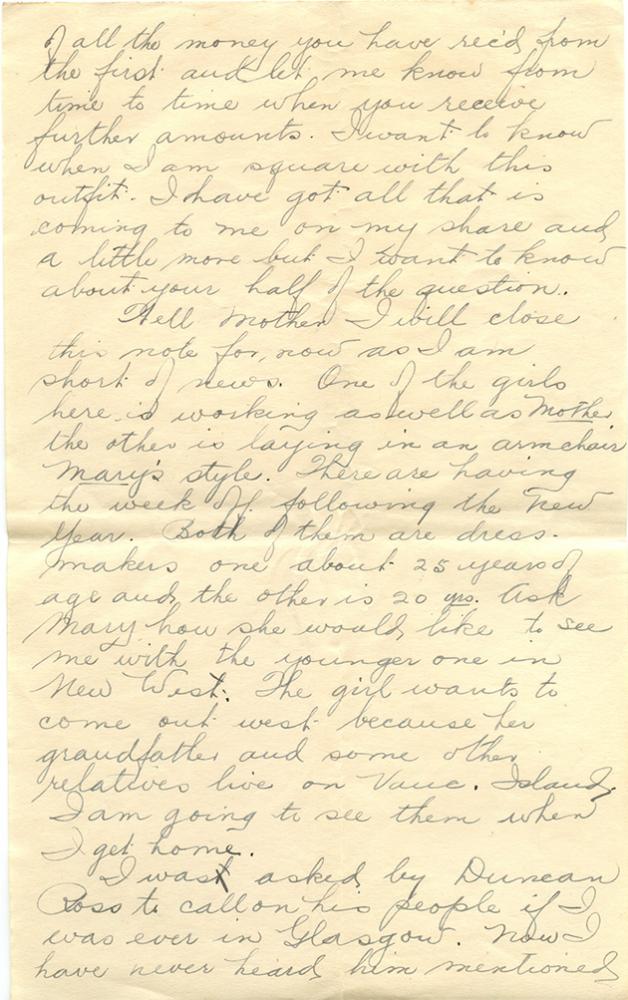 of all the money you have rec'd from
the first and let me know from
time to time when you receive
further amounts. I want to know
when I am square with this
outfit. I have got all that is
coming to me on my share and
a little more but I want to know
about your half of the question.
Well Mother I will close
this note for, now as I am
short of news. One of the girls
here is working as well as Mother
the other is laying in an armchair
Mary's style. There are having
the week off following the New
Year. Both of them are dress-
makers one about 25 years of
age and the other is 20 yrs. Ask
Mary how she would like to see
me with the younger one in
New West. The girl wants to
come out west because her
grandfather and some other
relatives live on Vanc. Island.
I am going to see them when
I get home.
I was asked by Duncan
Ross to call on his people if I
was ever in Glasgow. Now I
have never heard him mentioned